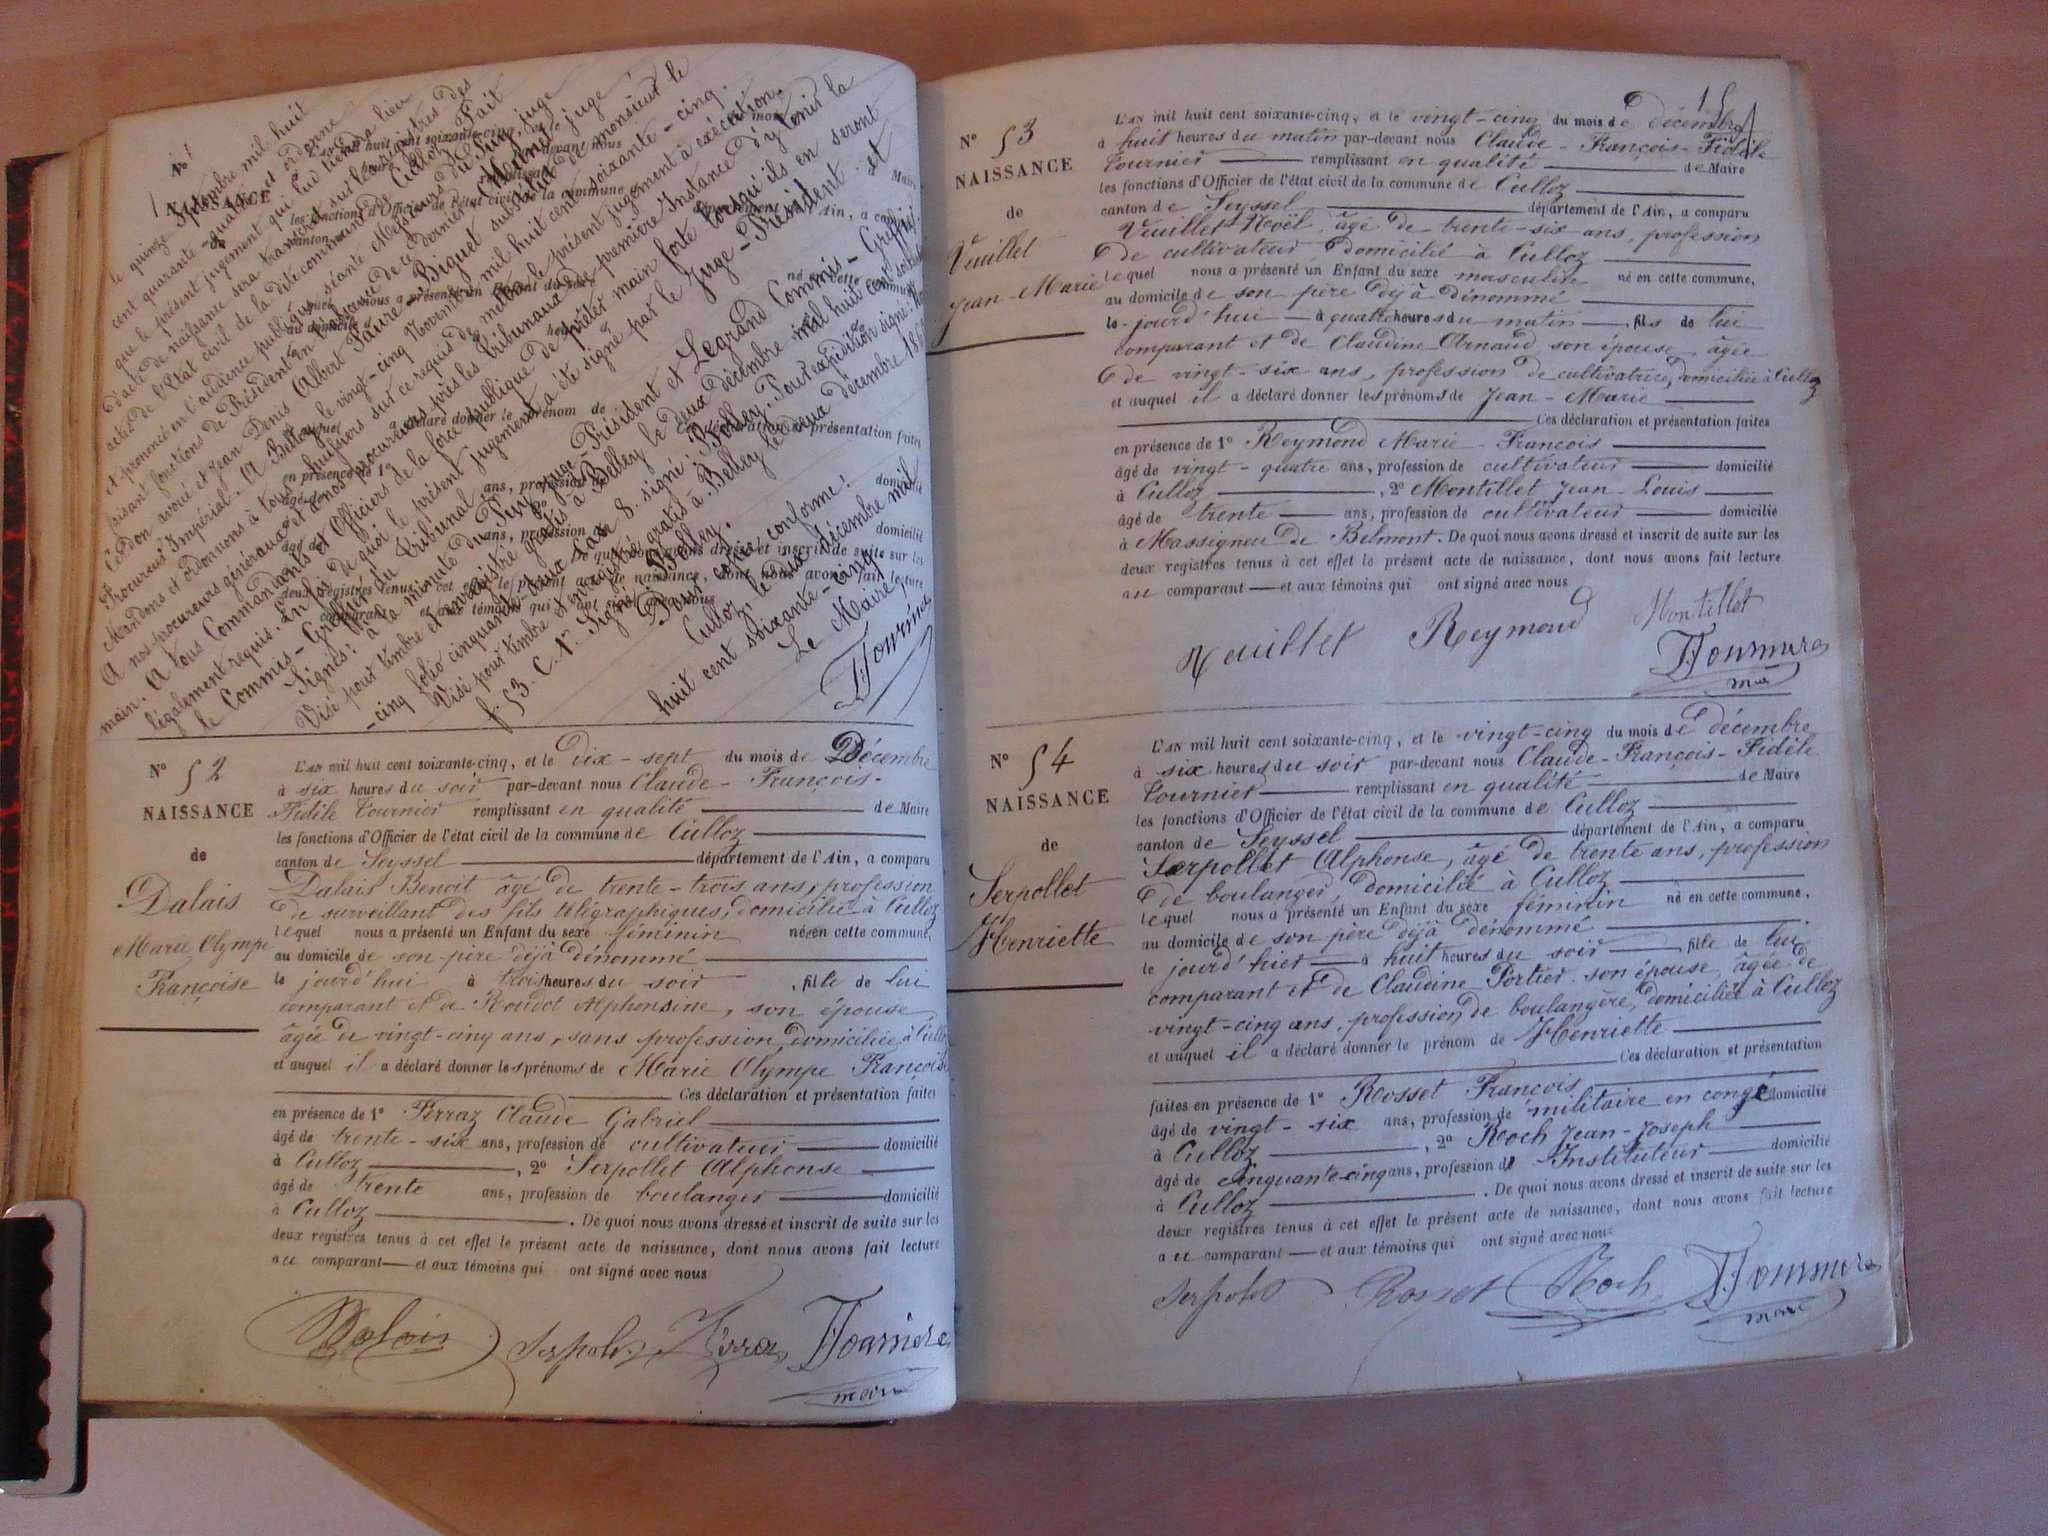 le quinze Septembre mil huit
cent quarante-quatre et ordonne
que le présent jugement qui lui tiendra lieu
d'acte de naissance sera transcrit sur les registres des
actes de l'Etat civil de la dite commune de Culloz. Fait
et prononcé en l'audience publique séante Messieurs du Puy, juge
faisant fonctions de Président en l'absence de ce dernier,
Cerdon avoué et Jean Denis Albert Faure Biguet substitut de monsieur le
Procureur Impérial. A Belley, le vingt-cinq Novembre mil huit cent soixante-cinq.
Mandons et ordonnons à tous huissiers sur ce requis de mettre le présent jugement à exécution.
A nos procureurs généraux et à nos procureurs près les tribunaux de première Instance d'y tenir la
main. A tous Commandants et Officiers de la force publique de prêter main forte lorsqu'ils en seront
légalement requis. En foi de quoi le présent jugement a été signé par le Juge-Président et
le Commis-Greffier du tribunal.
Signés: à la minute du Puy juge-Président et Legrand Commis-Greffier.
Visé pour timbre et enregistré gratis à Belley le deux décembre mil huit cent soixante
-cinq folio cinquante-trois case 8. signé: Bolley. Pour expédition signé:
Visé pour timbre et enregistré gratis à Belley le deux décembre 1865
f. 53. C. 1re Signé Bolley.
Pour copie conforme:
Culloz, le dix décembre mil
huit cent soixante-cinq
Le Maire,
Tournier
N° 52
NAISSANCE
de
Dalais
Marie Olympe
Françoise
L'AN mil huit cent soixante-cinq, et le Dix-sept du mois de Décembre
à six heures du soir par-devant nous Claude-François-
Fidèle Tournier remplissant en qualité de Maire
les fonctions d'Officier de l'état civil de la commune de Culloz
canton de Seyssel département de l'Ain, a comparu
Dalais Benoit âgé de trente-trois ans, profession
de surveillant des fils télégraphiques, domicilié à Culloz
lequel nous a présenté un Enfant du sexe féminin né en cette commune,
au domicile de son père déjà dénommé
le jourd'hui à trois heures du soir, fille de lui
comparant et de Roudot Alphonsine, son épouse,
âgée de vingt-cinq ans, sans profession, domiciliée à Culloz
et auquel il a déclaré donner les prénoms de Marie Olympe Françoise
Ces déclaration et présentation faites
en présence de 1° Ferraz Claude Gabriel
âgé de trente-six ans, profession de cultivateur domicilié
à Culloz, 2° Serpollet Alphonse
âgé de trente ans, profession de boulanger domicilié
à Culloz. De quoi nous avons dressé et inscrit de suite sur les
deux registres tenus à cet effet le présent acte de naissance, dont nous avons fait lecture
au comparant et aux témoins qui ont signé avec nous
Dalais Serpolet Ferraz Tournier
maire
N° 53
NAISSANCE
de
Vuillet
Jean-Marie
L'AN mil huit cent soixante-cinq, et le vingt-cinq du mois de décembre
à huit heures du matin par-devant nous Claude-François-Fidèle
Tournier remplissant en qualité de Maire
les fonctions d'Officier de l'état civil de la commune de Culloz
canton de Seyssel département de l'Ain, a comparu
Vuillet Noël, âgé de trente-six ans, profession
de cultivateur, domicilié à Culloz
lequel nous a présenté un Enfant du sexe masculin né en cette commune,
au domicile de son père déjà dénommé
le jourd'hui à quatre heures du matin, fils de lui
comparant et de Claudine Arnaud son épouse, âgée
de vingt-six ans, profession de cultivatrice, domiciliée à Culloz
et auquel il a déclaré donner les prénoms de Jean-Marie
Ces déclaration et présentation faites
en présence de 1° Reymond Marie-François
âgé de vingt-quatre ans, profession de cultivateur domicilié
à Culloz, 2° Montillet Jean-Louis
âgé de trente ans, profession de cultivateur domicilié
à Massigneu de Belmont. De quoi nous avons dressé et inscrit de suite sur les
deux registres tenus à cet effet le présent acte de naissance, dont nous avons fait lecture
au comparant et aux témoins qui ont signé avec nous
Vuillet Reymond Montillet
Tournier
maire
N° 54
NAISSANCE
de
Serpollet
Henriette
L'AN mil huit cent soixante-cinq, et le vingt-cinq du mois de décembre
à six heures du soir par-devant nous Claude-François-Fidèle
Tournier remplissant en qualité de Maire
les fonctions d'Officier de l'état civil de la commune de Culloz
canton de Seyssel département de l'Ain, a comparu
Serpollet Alphonse, âgé de trente ans, profession
de boulanger, domicilié à Culloz
lequel nous a présenté un Enfant du sexe féminin né en cette commune,
au domicile de son père déjà dénommé
le jourd'hier à huit heures du soir, fille de lui
comparant et de Claudine Portier son épouse, âgée de
vingt-cinq ans, profession de boulangère, domiciliée à Culloz
et auquel il a déclaré donner le prénom de Henriette
Ces déclaration et présentation
faites en présence de 1° Rosset François
âgé de vingt-six ans, profession de militaire en congé domicilié
à Culloz, 2° Roch Jean-Joseph
âgé de cinquante-cinq ans, profession d'Instituteur domicilié
à Culloz. De quoi nous avons dressé et inscrit de suite sur les
deux registres tenus à cet effet le présent acte de naissance, dont nous avons fait lecture
au comparant et aux témoins qui ont signé avec nous
Serpolet Rosset Roch Tournier
maire